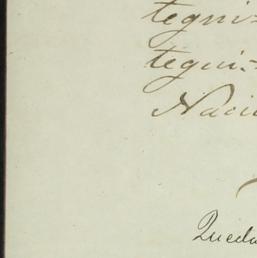 tegui-
tegui-
Naci
Queda